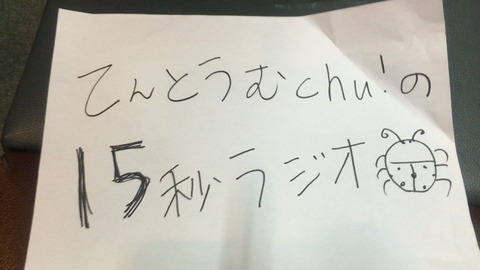 てんとうむchu!の
15秒ラジオ